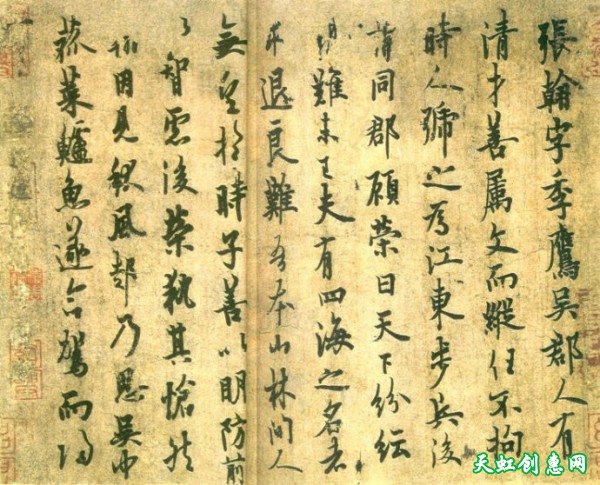 張翰字季鷹吳郡人有
清才善屬文而縱任不拘
時人號之為江東步兵後
謂同郡顧榮曰天下紛紜
禍難未已夫有四海之名者
求退良難吾本山林間人
無望於時子善以明防前
以智慮後榮執其愴然
翰因見秋風起乃思吳中
菰菜鱸魚遂命駕而歸
天虹创惠网